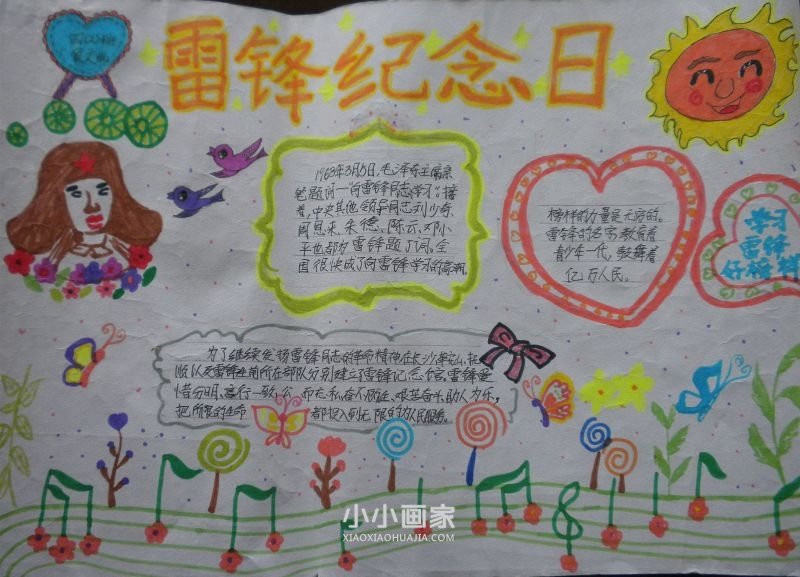 雷锋纪念日
1963年3月5日,毛泽东主席亲
笔题词一向雷锋同志学习"接
着,中央其他领导同志刘少奇、
周恩来、朱德、陈云、邓小
平也都为雷锋题了词,全
国很快成了向雷锋学习的高潮。
榜样的力量是无穷的。
雷锋的名字教育着
青少年一代,鼓舞着
亿万人民。
学习
雷锋
好榜样
为了继续发扬雷锋同志的革命精神在长沙
顺以及雷锋生前所在部队分别建立了雷锋纪念馆。雷锋爱
憎分明、言行一致、公而无私、奋不顾身、艰苦奋斗、助人为乐,
把所有的生命都投入到无限的为人民服务。
小小画家
XIAOXIAOHUAJIA.COM